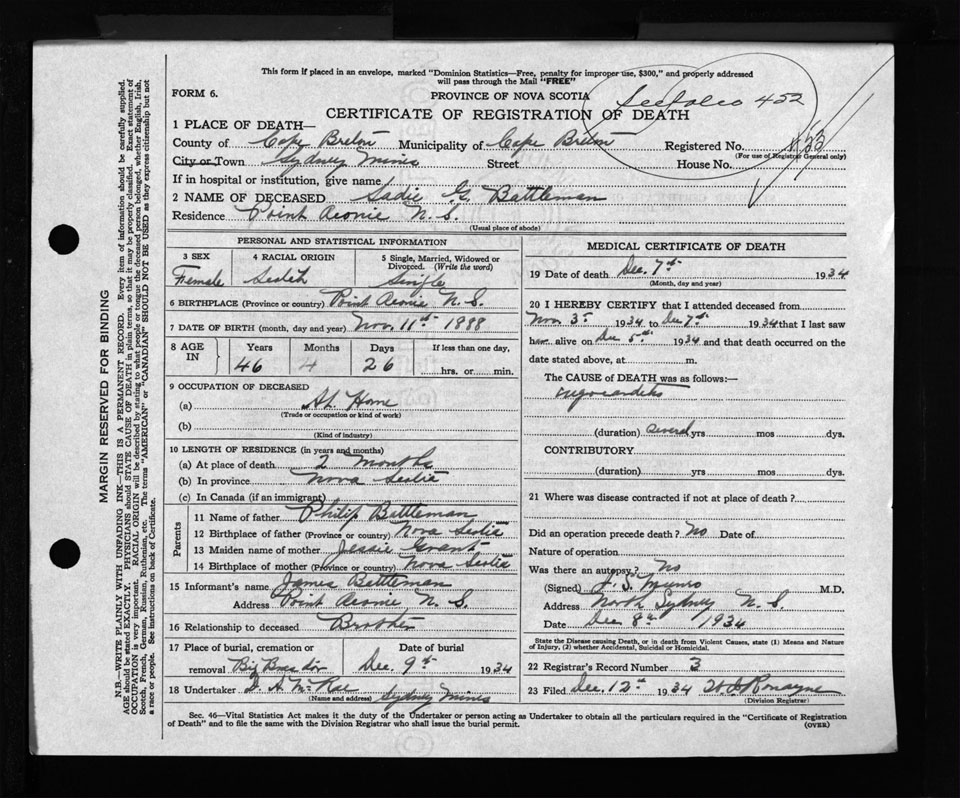 This form if placed in an envelope, marked "Dominion Statistics—Free, penalty for improper use, $300," and properly addressed
will pass through the Mail "FREE"
FORM 6.
PROVINCE OF NOVA SCOTIA
See folio 452
CERTIFICATE OF REGISTRATION OF DEATH
1 PLACE OF DEATH—
County of Cape Breton Municipality of Cape Breton Registered No.
(For use of Registrar General only)
City or Town Sydney Mines Street House No.
If in hospital or institution, give name
2 NAME OF DECEASED Sadie G. Battleman
Residence Point Aconie N. S.
(Usual place of abode)
PERSONAL AND STATISTICAL INFORMATION
3 SEX 4 RACIAL ORIGIN 5 Single, Married, Widowed or
Divorced. (Write the word)
Female Scotch Single
6 BIRTHPLACE (Province or country) Point Aconie N. S.
7 DATE OF BIRTH (month, day and year) Nov. 11th 1888
8 AGE IN Years Months Days If less than one day,
46 4 26 hrs. or min.
9 OCCUPATION OF DECEASED
(a) At Home
(Trade or occupation or kind of work)
(b)
(Kind of industry)
10 LENGTH OF RESIDENCE (in years and months)
(a) At place of death 2 months
(b) In province Nova Scotia
(c) In Canada (if an immigrant)
Parents
11 Name of father Philip Battleman
12 Birthplace of father (Province or country) Nova Scotia
13 Maiden name of mother Jessie Grant
14 Birthplace of mother (Province or country) Nova Scotia
15 Informant's name James Battleman
Address Point Aconie, N. S.
16 Relationship to deceased Brother
17 Place of burial, cremation or Date of burial
removal Big Bras dor Dec. 9th 1934
18 Undertaker D. A. McRae Sydney Mines
(Name and address)
MEDICAL CERTIFICATE OF DEATH
19 Date of death Dec. 7th 1934
(Month, day and year)
20 I HEREBY CERTIFY that I attended deceased from
Nov 3rd 1934 to Dec 7th 1934 that I last saw
h alive on Dec 5th 1934 and that death occurred on the
date stated above, at m.
The CAUSE of DEATH was as follows:—
myocarditis
(duration) several yrs mos dys.
CONTRIBUTORY
(duration) yrs mos dys.
21 Where was disease contracted if not at place of death?
Did an operation precede death? No Date of
Nature of operation
Was there an autopsy? No
(Signed) J. S. Munro M.D.
Address North Sydney N. S.
Date Dec 8th 1934
State the Disease causing Death, or in death from Violent Causes, state (1) Means and Nature
of Injury, (2) whether Accidental, Suicidal or Homicidal.
22 Registrar's Record Number 3
23 Filed Dec. 12th 1934 Ronayne
(Division Registrar)
Sec. 46—Vital Statistics Act makes it the duty of the Undertaker or person acting as Undertaker to obtain all the particulars required in the "Certificate of Registration
of Death" and to file the same with the Division Registrar who shall issue the burial permit.
(OVER)
MARGIN RESERVED FOR BINDING
N.B.—WRITE PLAINLY WITH UNFADING INK—THIS IS A PERMANENT RECORD. Every item of information should be carefully supplied.
AGE should be stated EXACTLY. PHYSICIANS should STATE CAUSE OF DEATH in plain terms, so that it may be properly classified. Exact statement of
OCCUPATION is very important. RACIAL ORIGIN will be described by stating to what people or tongue the deceased person belonged, whether English, Irish,
Scotch, French, German, Russian, Ruthenian, etc. The terms "AMERICAN" or "CANADIAN" SHOULD NOT BE USED as they express citizenship but not
a race or people. See instructions on back of Certificate.